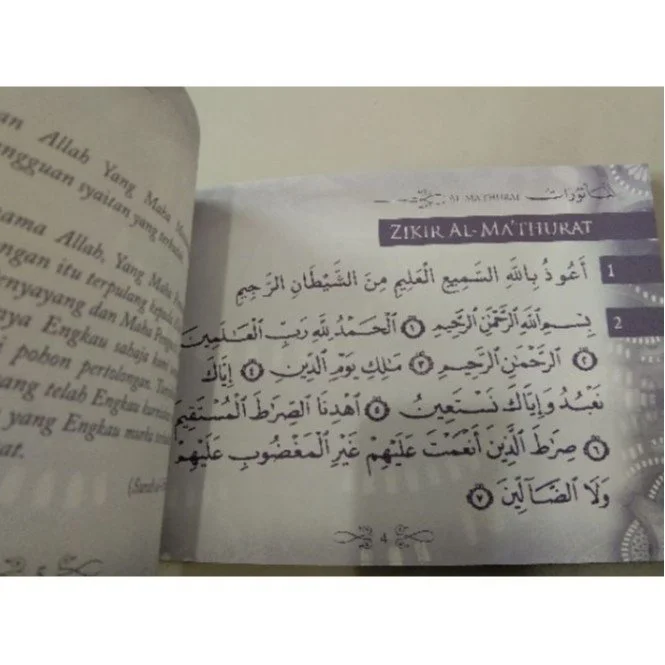 an Allah Yang Maha
angguan syaitan yang
nama Allah, Yang Maha
itu terpulang kepada
dan Maha
Engkau sahaja
pohon pertolongan.
yang telah Engkau
yang Engkau murka
at.
AL-MA'THURAT المأثورات
ZIKIR AL-MA'THURAT
1 أَعُوذُ بِاللَّهِ السَّمِيعِ الْعَلِيمِ مِنَ الشَّيْطَانِ الرَّجِيمِ
2 بِسْمِ اللَّهِ الرَّحْمَٰنِ الرَّحِيمِ ۝١ الْحَمْدُ لِلَّهِ رَبِّ الْعَالَمِينَ
۝٢ الرَّحْمَٰنِ الرَّحِيمِ ۝٣ مَالِكِ يَوْمِ الدِّينِ ۝٤ إِيَّاكَ
نَعْبُدُ وَإِيَّاكَ نَسْتَعِينُ ۝٥ اهْدِنَا الصِّرَاطَ الْمُسْتَقِيمَ
۝٦ صِرَاطَ الَّذِينَ أَنْعَمْتَ عَلَيْهِمْ غَيْرِ الْمَغْضُوبِ عَلَيْهِمْ
وَلَا الضَّالِّينَ ۝٧
4